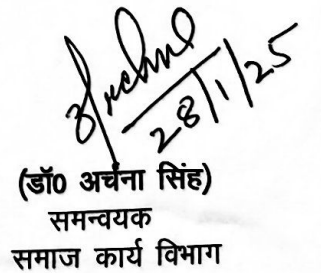 Archna
28/1/25
(डॉ0 अर्चना सिंह)
समन्वयक
समाज कार्य विभाग